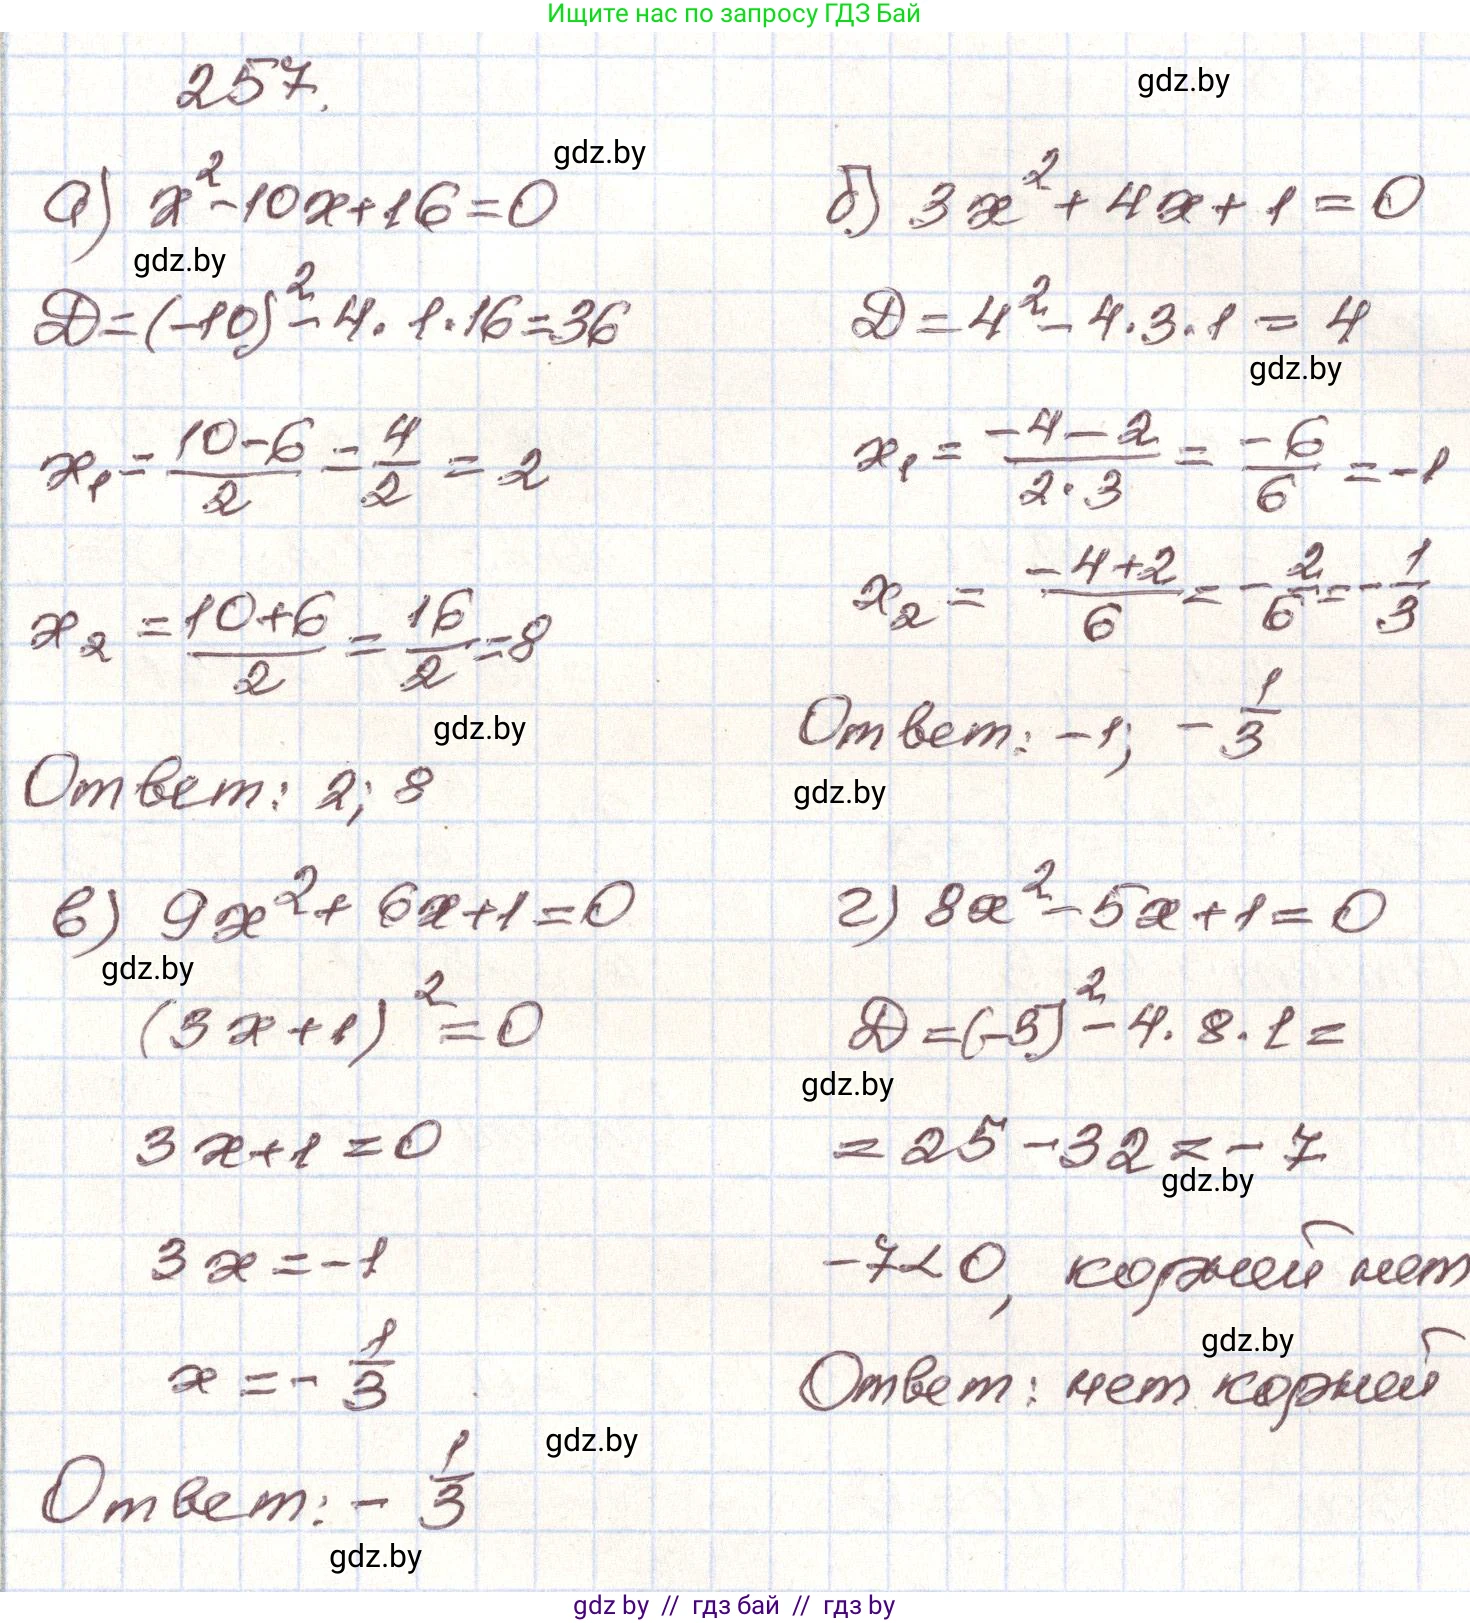 Ищите нас по запросу ГДЗ Бай
257.
gdz.by
gdz.by
а) x²-10x+16=0
gdz.by
Д=(-10)²-4·1·16=36
x₁=(10-6)/2=4/2=2
x₂=(10+6)/2=16/2=8
gdz.by
Ответ: 2; 8
б) 3x²+4x+1=0
Д=4²-4·3·1=4
gdz.by
x₁=(-4-2)/(2·3)=-6/6=-1
x₂=(-4+2)/6=-2/6=-1/3
Ответ: -1; -1/3
gdz.by
в) 9x²+6x+1=0
gdz.by
(3x+1)²=0
3x+1=0
3x=-1
x=-1/3
gdz.by
Ответ: -1/3
gdz.by
г) 8x²-5x+1=0
Д=(-5)²-4·8·1=
gdz.by
=25-32=-7
gdz.by
-7<0, корней нет
gdz.by
Ответ: нет корней
gdz by // гдз бай // гдз by